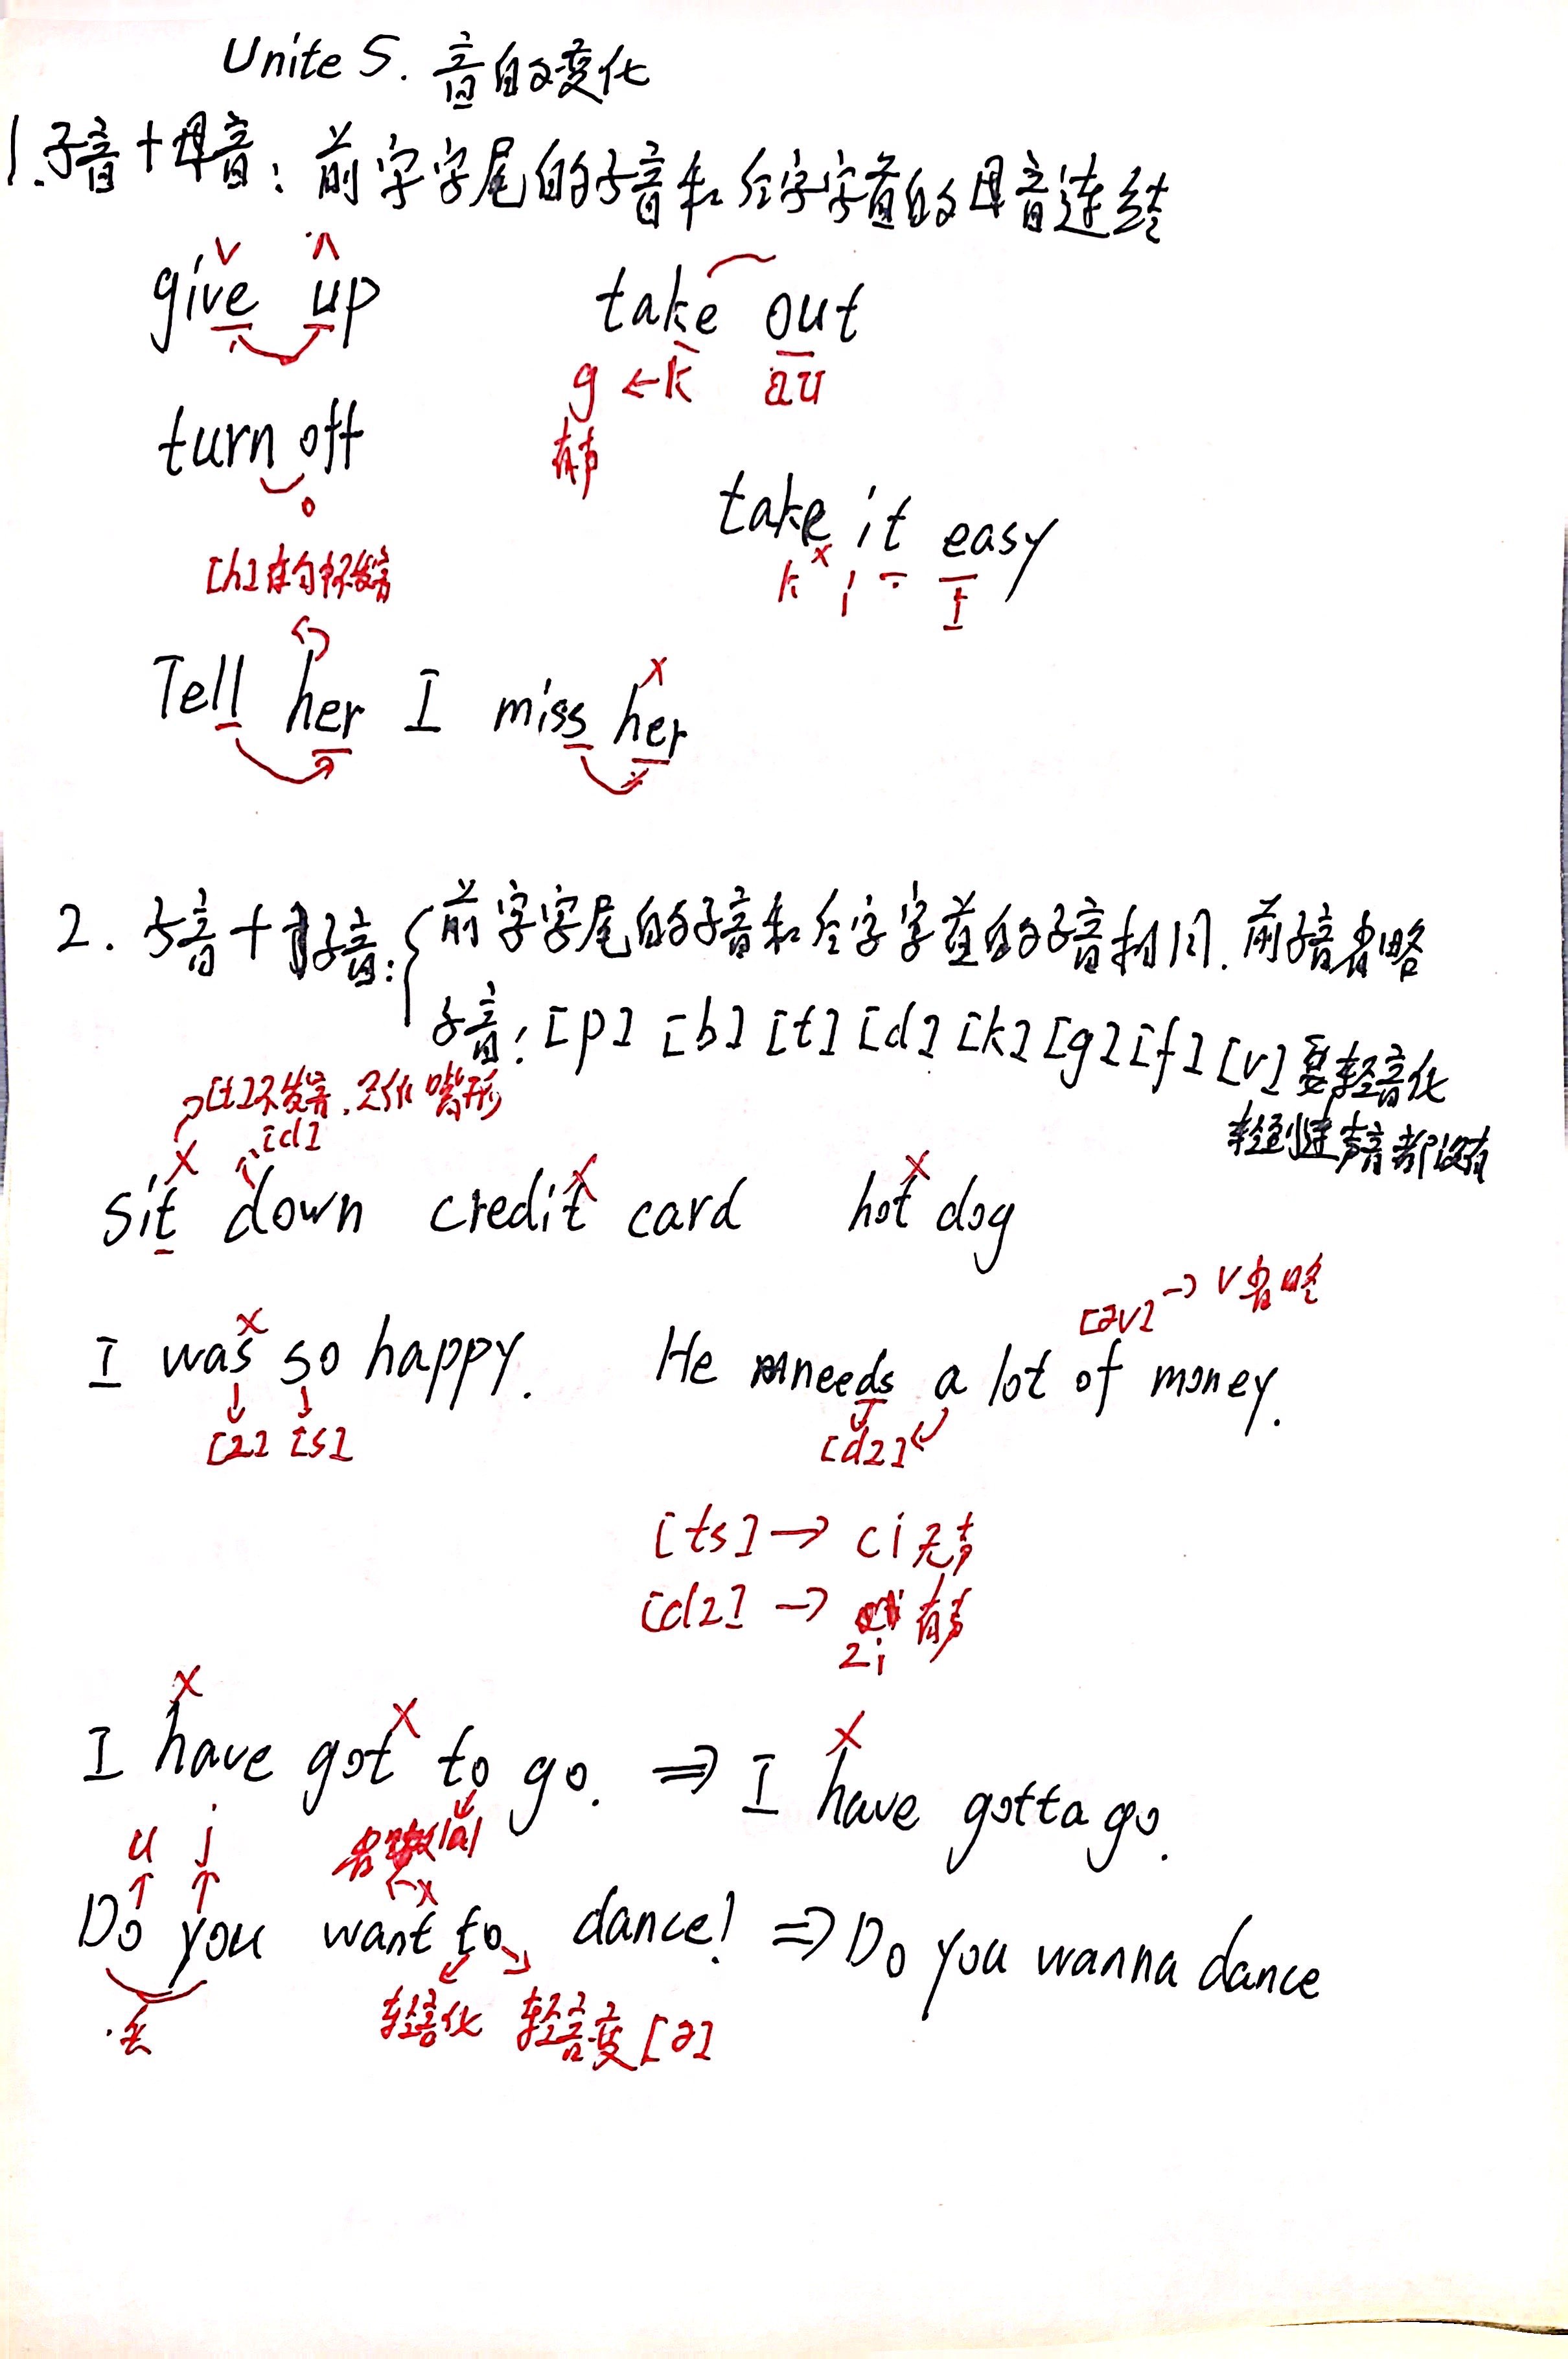 Unite 5. 音的变化
1. 子音+母音: 前字字尾的子音和后字字首的母音连结
v ʌ
give up take out
g ← k au
有声
turn off
take it easy
k x i I
[h]在句中不发音
Tell her I miss her
x
2. 子音+子音: 前字字尾的子音和后字字首的子音相同. 前子音省略
子音: [p] [b] [t] [d] [k] [g] [f] [v] 要轻音化
轻到连声音都没有
[t]不发音, 只作嘴形
[d]
x x x
sit down credit card hot dog
[əv] → v省略
x
I was so happy. He needs a lot of money.
[z] [s] [dz]
[ts] → ci 无声
[dz] → zi 有声
x x x
I have got to go. ⇒ I have gotta go.
u j
x
Do you want to dance! ⇒ Do you wanna dance
轻音化 轻音变[ə]